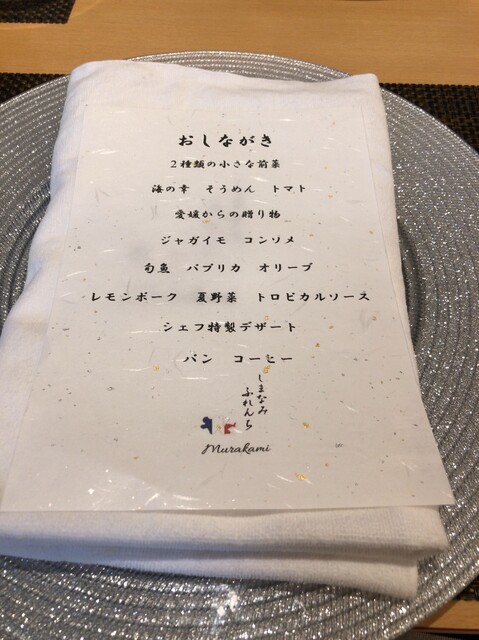 おしながき
2種類の小さな前菜
海の幸 そうめん トマト
愛媛からの贈り物
ジャガイモ コンソメ
旬魚 パプリカ オリーブ
レモンポーク 夏野菜 トロピカルソース
シェフ特製デザート
パン コーヒー
しまなみ
ふれんち
Murakami